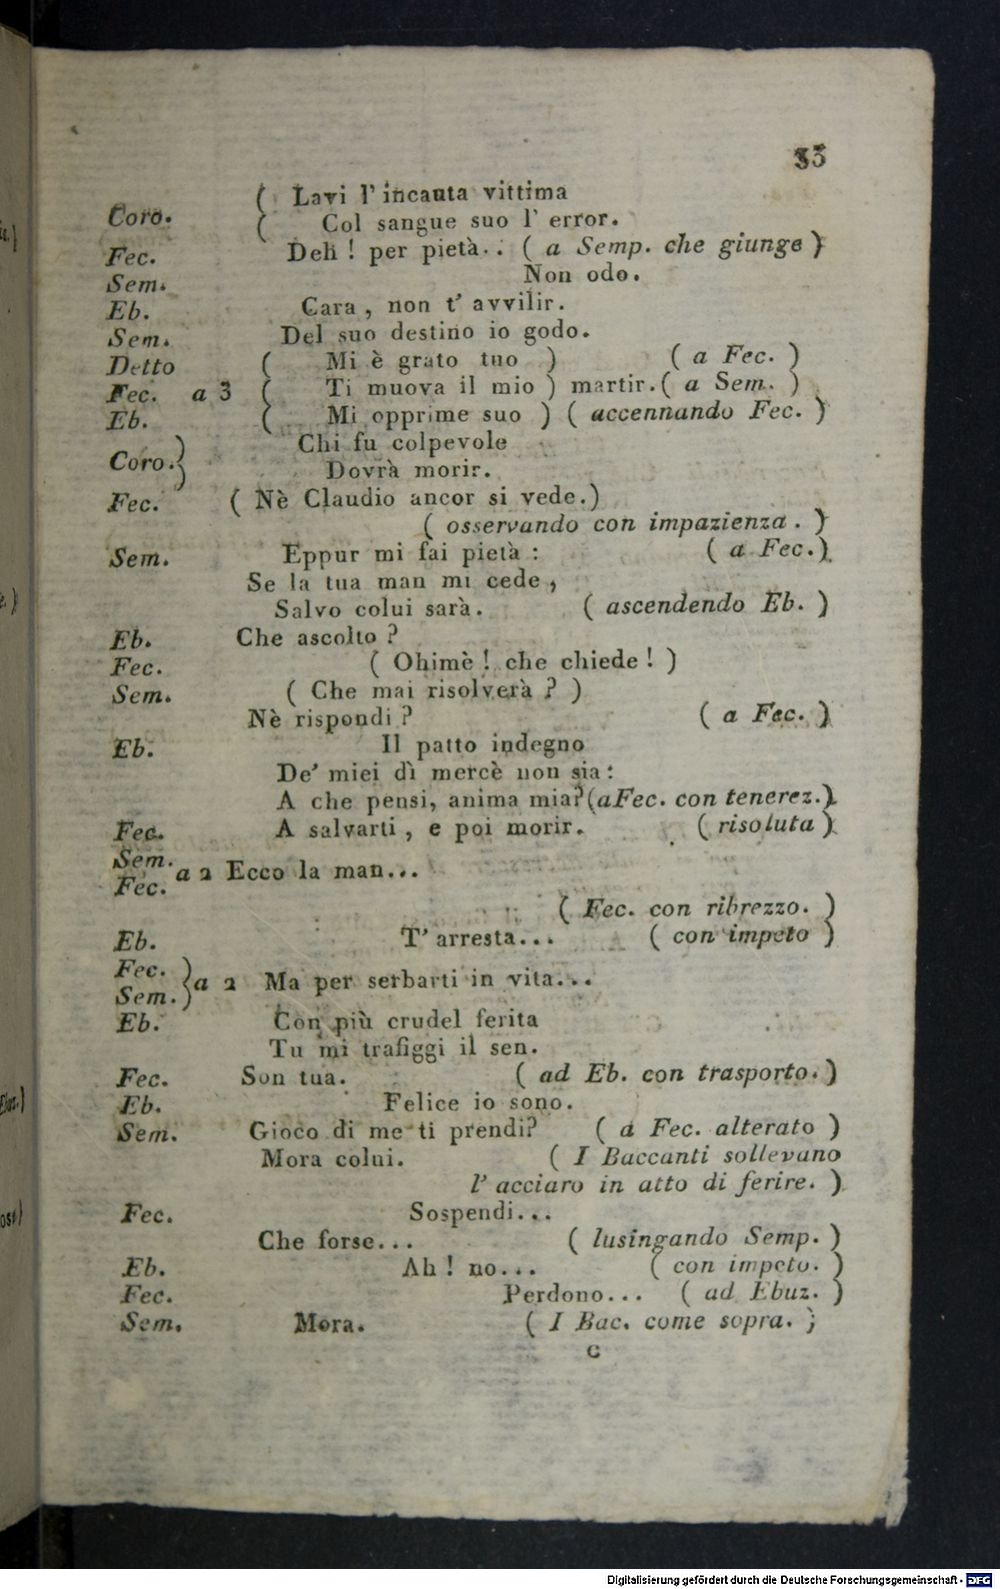 33
Coro. ( Lavi l' incauta vittima
( Col sangue suo l' error.
Fec. Deh ! per pietà.. ( a Semp. che giunge )
Sem. Non odo.
Eb. Cara , non t' avvilir.
Sem. Del suo destino io godo.
Detto ( Mi è grato tuo ) ( a Fec. )
Fec. a 3 ( Ti muova il mio ) martir. ( a Sem. )
Eb. ( Mi opprime suo ) ( accennando Fec. )
Coro. } Chi fu colpevole
Dovrà morir.
Fec. ( Nè Claudio ancor si vede.)
( osservando con impazienza . )
Sem. Eppur mi fai pietà : ( a Fec.)
Se la tua man mi cede ,
Salvo colui sarà. ( ascendendo Eb. )
Eb. Che ascolto ?
Fec. ( Ohimè ! che chiede ! )
Sem. ( Che mai risolverà ? )
Nè rispondi ? ( a Fec. )
Eb. Il patto indegno
De' miei dì mercè non sia :
A che pensi, anima mia? (aFec. con tenerez.)
Fec. A salvarti , e poi morir. ( risoluta )
Sem.
Fec. a 2 Ecco la man...
( Fec. con ribrezzo. )
Eb. T' arresta... ( con impeto )
Fec.
Sem. } a 2 Ma per serbarti in vita...
Eb. Con più crudel ferita
Tu mi trafiggi il sen.
Fec. Son tua. ( ad Eb. con trasporto. )
Eb. Felice io sono.
Sem. Gioco di me ti prendi? ( a Fec. alterato )
Mora colui. ( I Baccanti sollevano
l' acciaro in atto di ferire. )
Fec. Sospendi...
Che forse... ( lusingando Semp. )
Eb. Ah ! no... ( con impeto. )
Fec. Perdono... ( ad Ebuz. )
Sem. Mora. ( I Bac. come sopra. )
C
Digitalisierung gefördert durch die Deutsche Forschungsgemeinschaft - DFG